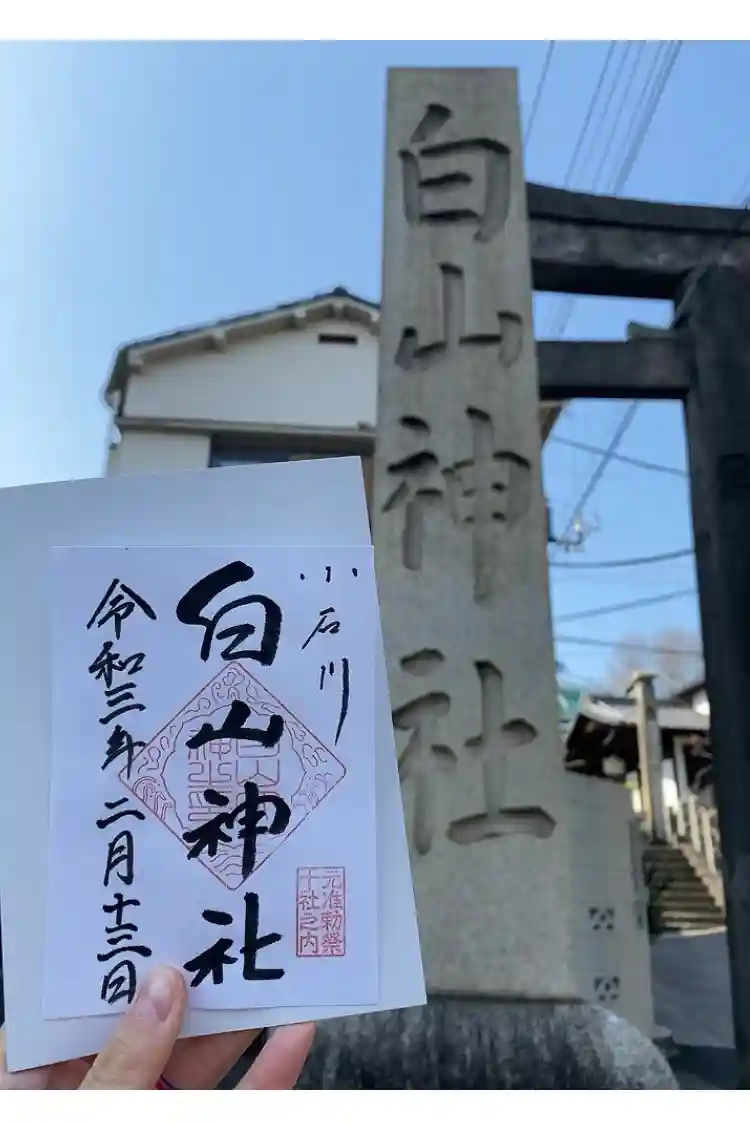 白山神社
小石川
白山神社
令和三年二月十三日
元准勅祭
十社之内